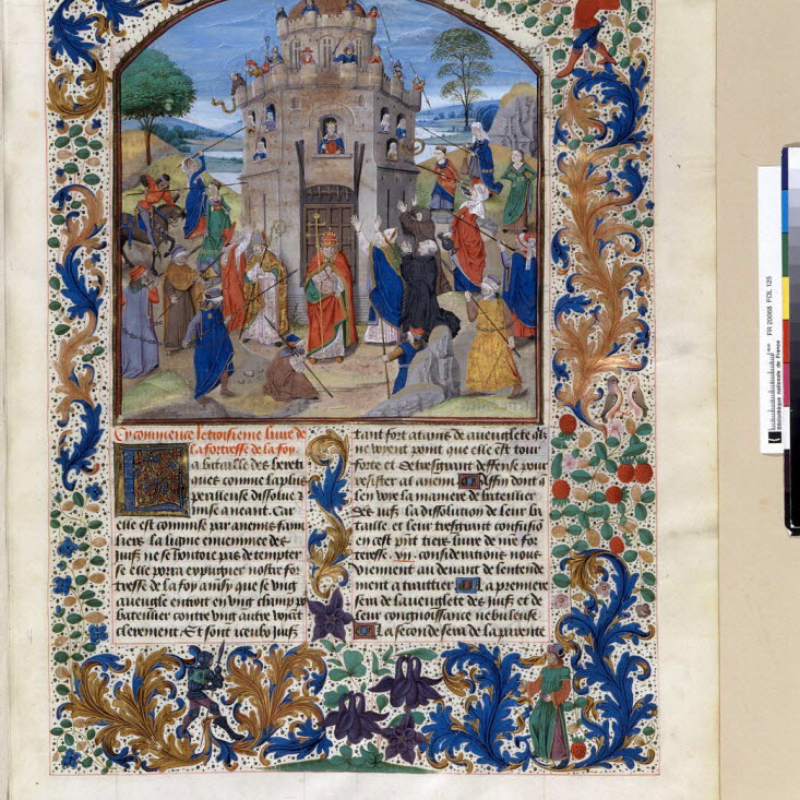 Cy commence le troisieme liure de
la forteresse de la foy.
La bataille des hereti
ques comme la plus
perilleuse dissolue &
mise a neant. Car
elle est commise par anemis fami
liers la ligne enuenimee des
juifz ne se boutoie pas de tempter
se elle porra expugner nostre for
tresse de la foy ainsy que se vng
aueugle entroit en vng champ po
bateillier contre vng autre voyant
clerement Et sont iceulx juifz
tant fort atains de aueuglete qlz
ne voyent point que elle est tour
forte et de tresgrant deffense pour
resister a tout anemi Affin dont q
len voye la maniere de bateillier
des juifz la dissolution de leur ba
taille et leur tresgrant confusio
en cest pnt tiers liure de nre for
teresse. vii. considerations nous
viennent au deuant de lentende
ment a traittier La premiere
sera de laueuglete des juifz et de
leur congnoissance nebuleuse
La seconde sera de la parente
Bibliothèque nationale de France
FR 20068 FOL 125